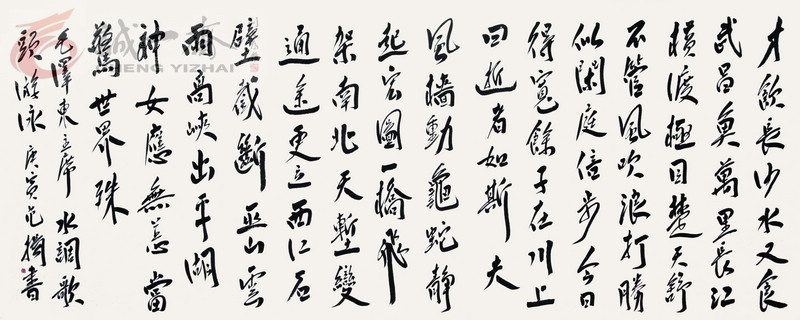 才飲長沙水又食
武昌魚萬里長江
橫渡極目楚天舒
不管風吹浪打勝
似閑庭信步今日
得寬餘子在川上
曰逝者如斯夫
風檣動龜蛇靜
起宏圖一橋飛
架南北天塹變
通途更立西江石
壁截斷巫山雲
雨高峽出平湖
神女應無恙當
驚世界殊
毛澤東主席 水調歌
頭游泳 庚寅 書
誠一齋
CHENG YIZHAI